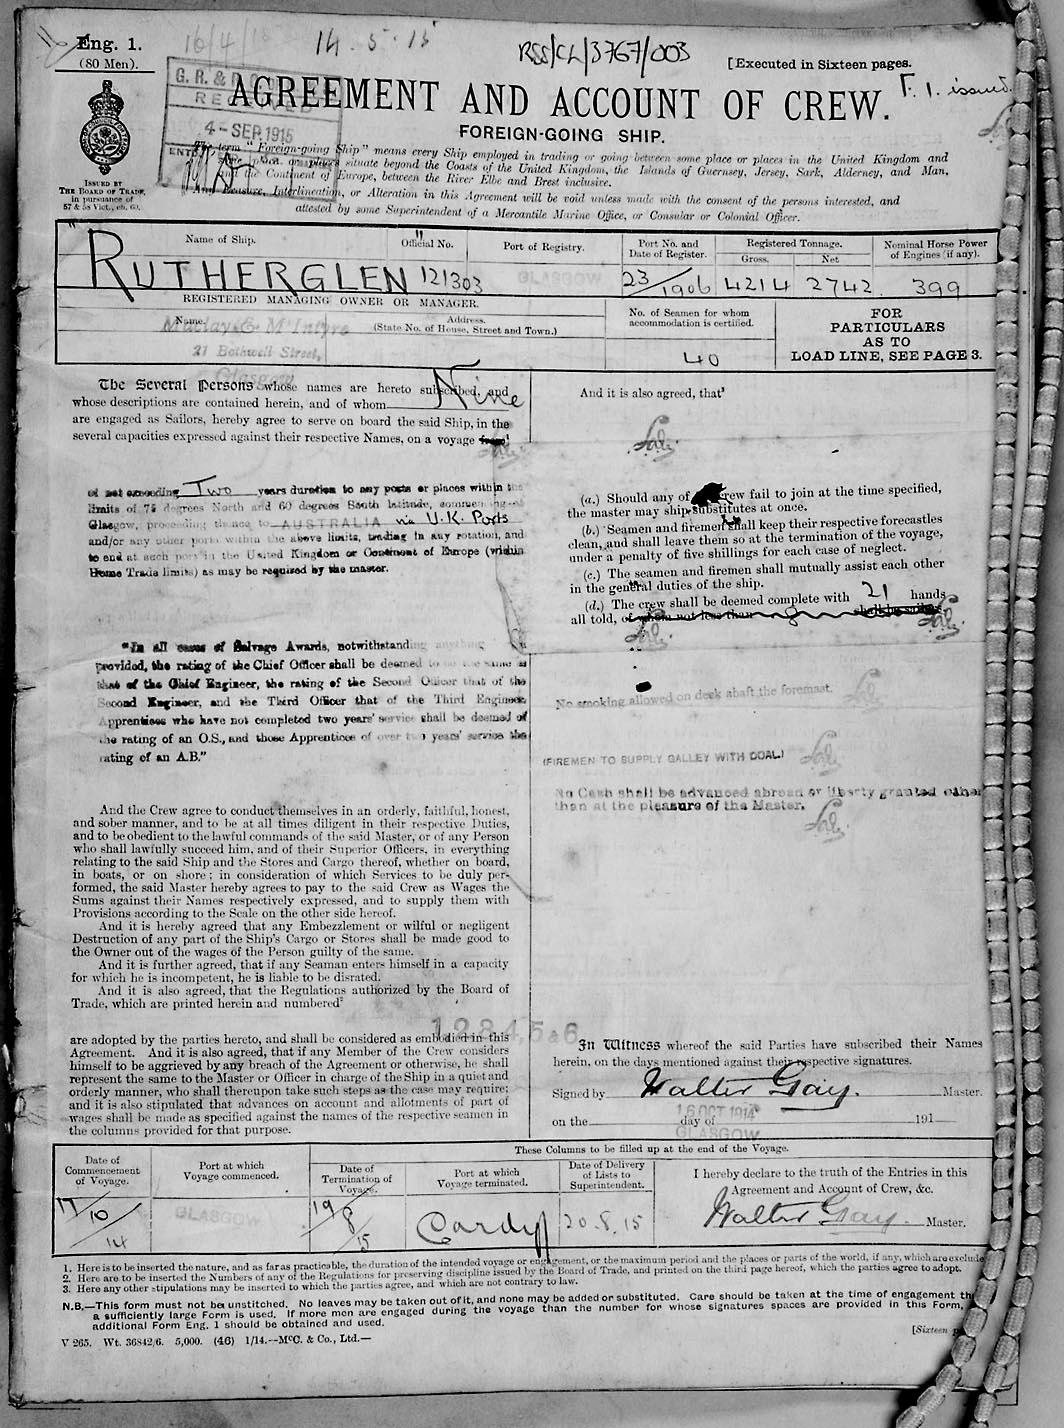 Eng. 1.
(80 Men).
16/4/
14.5.15
RSS/CL/3767/003
[Executed in Sixteen pages.
F. 1. issued.
G. R. &
4-SEP.1915
AGREEMENT AND ACCOUNT OF CREW.
FOREIGN-GOING SHIP.
ISSUED BY
THE BOARD OF TRADE,
in pursuance of
57 & 58 Vict., ch. 60.
The term "Foreign-going Ship" means every Ship employed in trading or going between some place or places in the United Kingdom and
situate beyond the Coasts of the United Kingdom, the Islands of Guernsey, Jersey, Sark, Alderney, and Man,
and the Continent of Europe, between the River Elbe and Brest inclusive.
Any Erasure, Interlineation, or Alteration in this Agreement will be void unless made with the consent of the persons interested, and
attested by some Superintendent of a Mercantile Marine Office, or Consular or Colonial Officer.
Name of Ship.
Official No.
Port of Registry.
Port No. and Date of Register.
Registered Tonnage.
Gross.
Net
Nominal Horse Power of Engines (if any).
"RUTHERGLEN" 121303 GLASGOW 23/1906 4214 2742 399
REGISTERED MANAGING OWNER OR MANAGER.
Name.
Address.
(State No. of House, Street and Town.)
Maclay & McIntyre
21 Bothwell Street,
Glasgow
No. of Seamen for whom accommodation is certified.
40
FOR
PARTICULARS
AS TO
LOAD LINE, SEE PAGE 3.
The Several Persons whose names are hereto subscribed, and
whose descriptions are contained herein, and of whom Nine
are engaged as Sailors, hereby agree to serve on board the said Ship, in the
several capacities expressed against their respective Names, on a voyage from¹
of not exceeding Two years duration to any ports or places within the
limits of 75 degrees North and 60 degrees South latitude, commencing at
Glasgow, proceeding thence to AUSTRALIA via U.K. Ports
and/or any other ports within the above limits, trading in any rotation, and
to end at such port in the United Kingdom or Continent of Europe (within
Home Trade limits) as may be required by the master.
"In all cases of Salvage Awards, notwithstanding anything
provided, the rating of the Chief Officer shall be deemed to be the same as
that of the Chief Engineer, the rating of the Second Officer that of the
Second Engineer, and the Third Officer that of the Third Engineer.
Apprentices who have not completed two years' service shall be deemed of
the rating of an O.S., and those Apprentices of over two years' service the
rating of an A.B."
And the Crew agree to conduct themselves in an orderly, faithful, honest,
and sober manner, and to be at all times diligent in their respective Duties,
and to be obedient to the lawful commands of the said Master, or of any Person
who shall lawfully succeed him, and of their Superior Officers, in everything
relating to the said Ship and the Stores and Cargo thereof, whether on board,
in boats, or on shore; in consideration of which Services to be duly per-
formed, the said Master hereby agrees to pay to the said Crew as Wages the
Sums against their Names respectively expressed, and to supply them with
Provisions according to the Scale on the other side hereof.
And it is hereby agreed that any Embezzlement or wilful or negligent
Destruction of any part of the Ship's Cargo or Stores shall be made good to
the Owner out of the wages of the Person guilty of the same.
And it is further agreed, that if any Seaman enters himself in a capacity
for which he is incompetent, he is liable to be disrated.
And it is also agreed, that the Regulations authorized by the Board of
Trade, which are printed herein and numbered²
1 2 3 4, 5 & 6
are adopted by the parties hereto, and shall be considered as embodied in this
Agreement. And it is also agreed, that if any Member of the Crew considers
himself to be aggrieved by any breach of the Agreement or otherwise, he shall
represent the same to the Master or Officer in charge of the Ship in a quiet and
orderly manner, who shall thereupon take such steps as the case may require;
and it is also stipulated that advances on account and allotments of part of
wages shall be made as specified against the names of the respective seamen in
the columns provided for that purpose.
And it is also agreed, that³
(a.) Should any of crew fail to join at the time specified,
the master may ship substitutes at once.
(b.) Seamen and firemen shall keep their respective forecastles
clean, and shall leave them so at the termination of the voyage,
under a penalty of five shillings for each case of neglect.
(c.) The seamen and firemen shall mutually assist each other
in the general duties of the ship.
(d.) The crew shall be deemed complete with 21 hands
all told, of whom not less than shall be sailors
No smoking allowed on deck abaft the foremast.
(FIREMEN TO SUPPLY GALLEY WITH COAL.)
No Cash shall be advanced abroad or liberty granted other
than at the pleasure of the Master.
In Witness whereof the said Parties have subscribed their Names
herein, on the days mentioned against their respective signatures.
Signed by Walter Gay. Master.
16 OCT 1914
on the day of 191
GLASGOW
These Columns to be filled up at the end of the Voyage.
Date of Commencement of Voyage.
Port at which Voyage commenced.
Date of Termination of Voyage.
Port at which Voyage terminated.
Date of Delivery of Lists to Superintendent.
I hereby declare to the truth of the Entries in this
Agreement and Account of Crew, &c.
17/10/14 GLASGOW 19/8/15 Cardiff 20.8.15 Walter Gay. Master.
1. Here is to be inserted the nature, and as far as practicable, the duration of the intended voyage or engagement, or the maximum period and the places or parts of the world, if any, which are exclude
2. Here are to be inserted the Numbers of any of the Regulations for preserving discipline issued by the Board of Trade, and printed on the third page hereof, which the parties agree to adopt.
3. Here any other stipulations may be inserted to which the parties agree, and which are not contrary to law.
N.B.—This form must not be unstitched. No leaves may be taken out of it, and none may be added or substituted. Care should be taken at the time of engagement th
a sufficiently large Form is used. If more men are engaged during the voyage than the number for whose signatures spaces are provided in this Form,
additional Form Eng. 1 should be obtained and used.
V 265. Wt. 36842/6. 5,000. (46) 1/14.—McC. & Co., Ltd.—
[Sixteen p